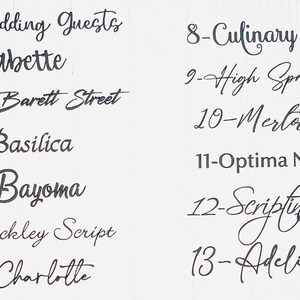 dding Guests
abette
Barett Street
Basilica
Bayoma
ckley Script
Charlotte
8-Culinary
9-High Sp
10-Merlo
11-Optima N
12-Scriptin
13-Adeli